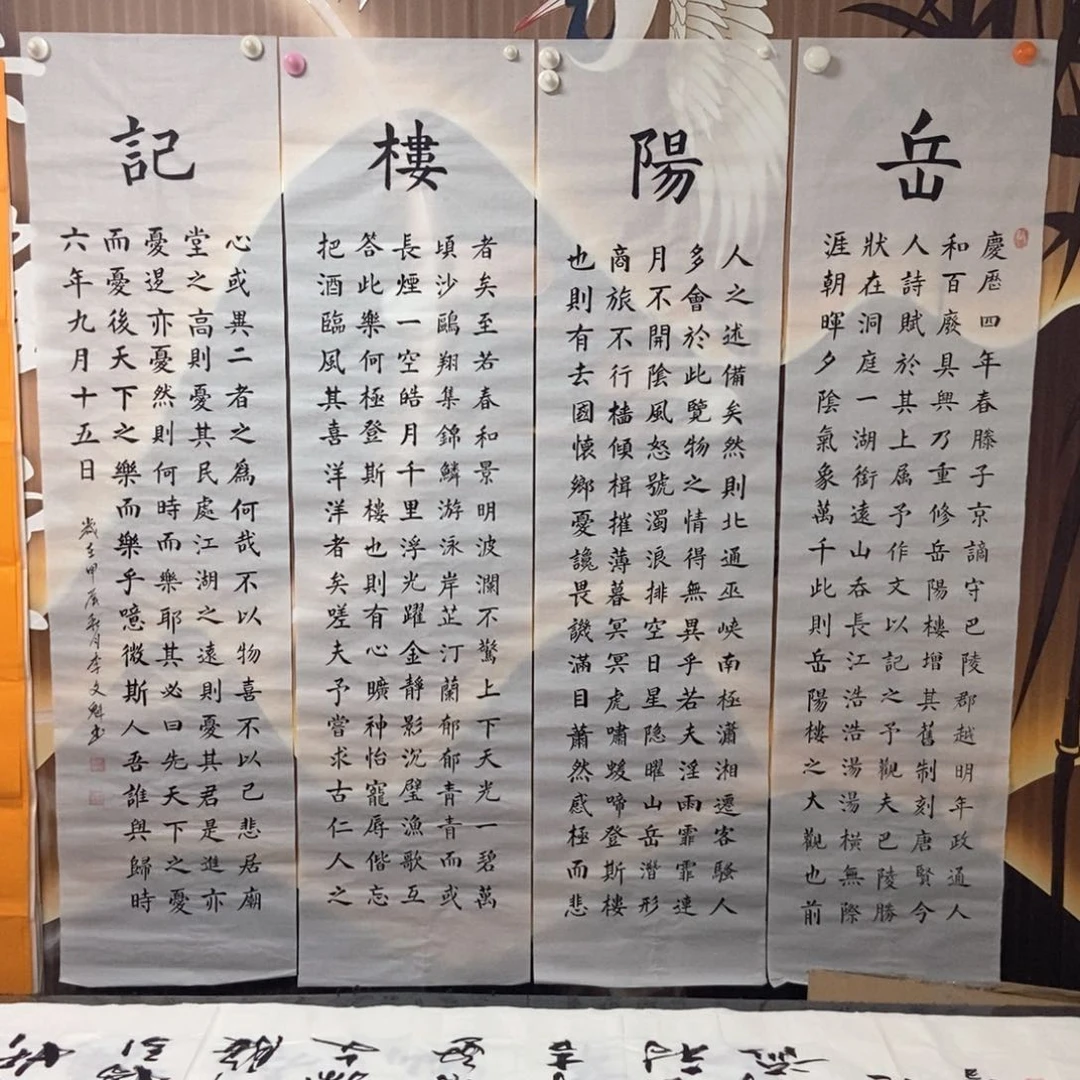 岳
慶厯四年春滕子京謫守巴陵郡越明年政通人
和百廢具興乃重修岳陽樓增其舊制刻唐賢今
人詩賦於其上属予作文以記之予觀夫巴陵勝
狀在洞庭一湖銜遠山吞長江浩浩湯湯橫無際
涯朝暉夕陰氣象萬千此則岳陽樓之大觀也前
陽
人之述備矣然則北通巫峽南極瀟湘遷客騷人
多會於此覽物之情得無異乎若夫淫雨霏霏連
月不開陰風怒號濁浪排空日星隐曜山岳潛形
商旅不行檣傾楫摧薄暮冥冥虎嘯猨啼登斯樓
也則有去國懷鄉憂讒畏譏滿目蕭然感極而悲
樓
者矣至若春和景明波瀾不驚上下天光一碧萬
頃沙鷗翔集錦鱗游泳岸芷汀蘭郁郁青青而或
長煙一空皓月千里浮光躍金靜影沉璧漁歌互
答此樂何極登斯樓也則有心曠神怡寵辱偕忘
把酒臨風其喜洋洋者矣嗟夫予嘗求古仁人之
記
心或異二者之為何哉不以物喜不以己悲居廟
堂之高則憂其民處江湖之遠則憂其君是進亦
憂退亦憂然則何時而樂耶其必曰先天下之憂
而憂後天下之樂而樂乎噫微斯人吾誰與歸時
六年九月十五日
歲在甲辰秋月李文魁書